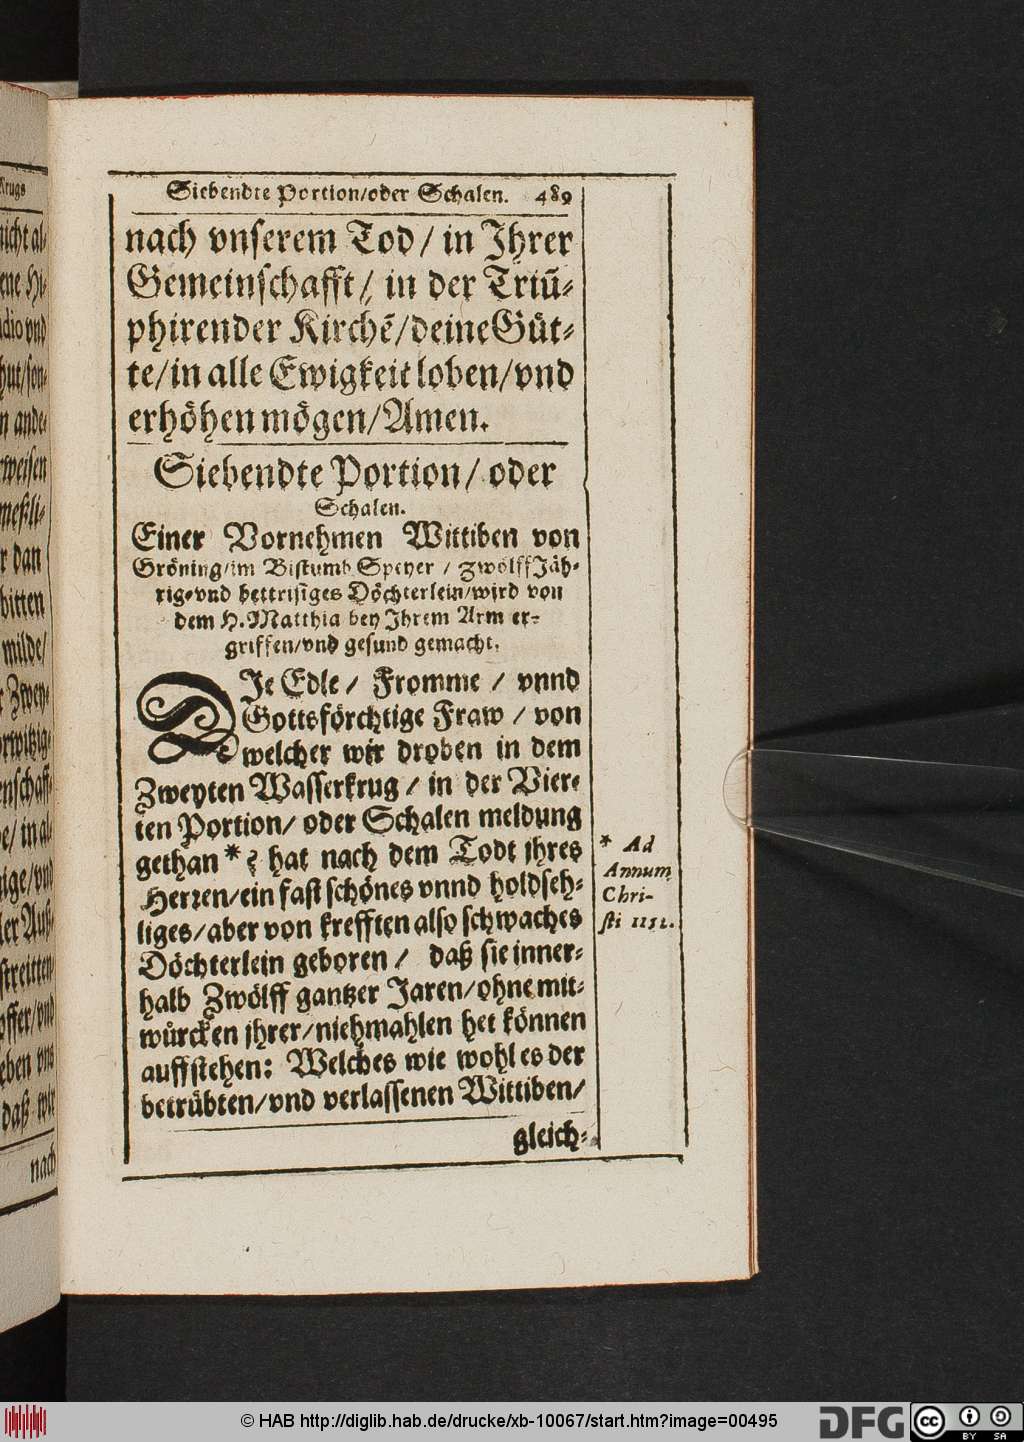 Siebendte Portion/oder Schalen. 489
nach vnserem Tod/ in Jhrer
Gemeinschafft/ in der Triũ-
phirender Kirchẽ/deine Güt-
te/in alle Ewigkeit loben/vnd
erhöhen mögen/Amen.
Siebendte Portion/ oder
Schalen.
Einer Vornehmen Wittiben von
Gröning/im Bistumb Speyer / zwölff Jäh-
rig-vnd bettrisiges Döchterlein/wird von
dem H. Matthia bey Jhrem Arm er-
griffen/vnd gesund gemacht.
DJe Edle/ Fromme / vnnd
Gottsförchtige Fraw / von
welcher wir droben in dem
Zweyten Wasserkrug / in der Vier-
ten Portion/ oder Schalen meldung
gethan * ; hat nach dem Todt jhres
Herren/ein fast schönes vnnd holdseh-
liges/aber von krefften also schwaches
Döchterlein geboren / daß sie inner-
halb Zwölff gantzer Jaren/ohne mit-
würcken jhrer/niehmahlen het können
auffstehen: Welches wie wohl es der
betrübten/vnd verlassenen Wittiben/
gleich-
* Ad
Annum
Chri-
sti 1151.
nicht al-
ene Hi-
adio vnd
hut/son-
n ande-
rweisen
meßli-
r dan
bitten
milde/
r Zwey-
rwitzig-
enschaff-
e/ in al-
ige/vnd
ler Auß-
streitten
offer/vnd
eben vns
daß wir
nach
© HAB http://diglib.hab.de/drucke/xb-10067/start.htm?image=00495
DFG
cc
BY SA